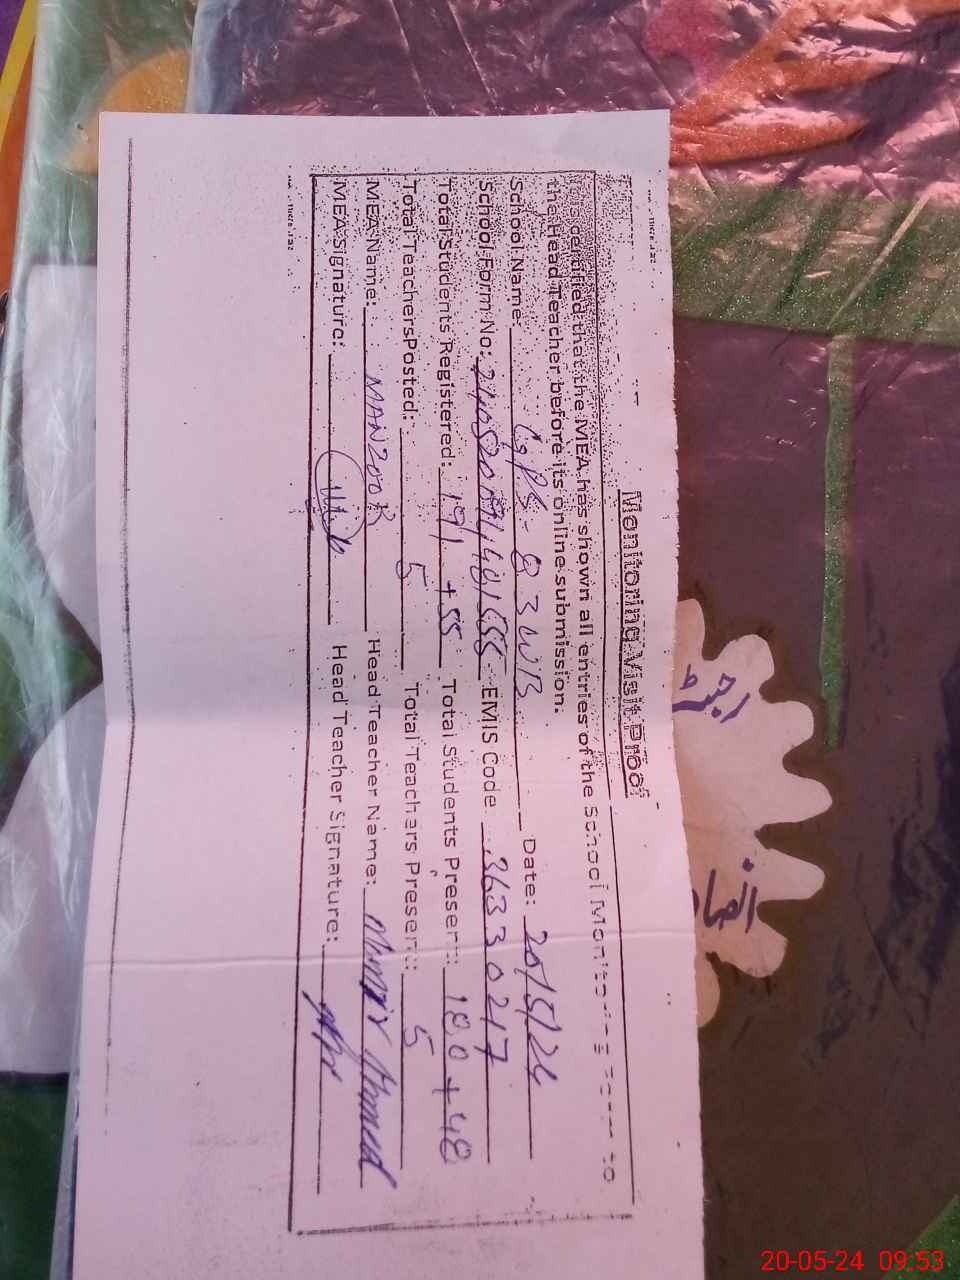 Monitoring Visit Proof
It is certified that the MEA has shown all entries of the School Monitoring Form to
the Head Teacher before its online submission.
School Name GPS-83 WB Date: 20/5/24
School Form No: EMIS Code 36330217
Total Students Registered: 191 +55 Total Students Present: 180 + 48
Total Teachers Posted: 5 Total Teachers Present: 5
MEA Name: MANZOOR Head Teacher Name: Ahmed
MEA Signature: Head Teacher Signature:
رجسٹر
20-05-24 09:53